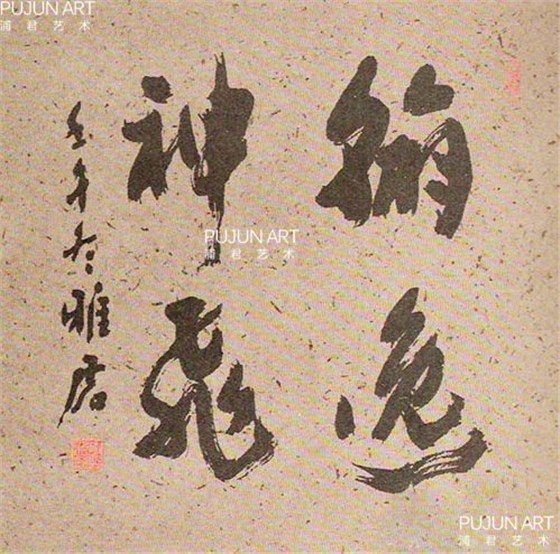 PUJUN ART
浦君艺术
翰逸
神飛
午冬雅居
PUJUN ART
浦君艺术
PUJUN ART
浦君艺术